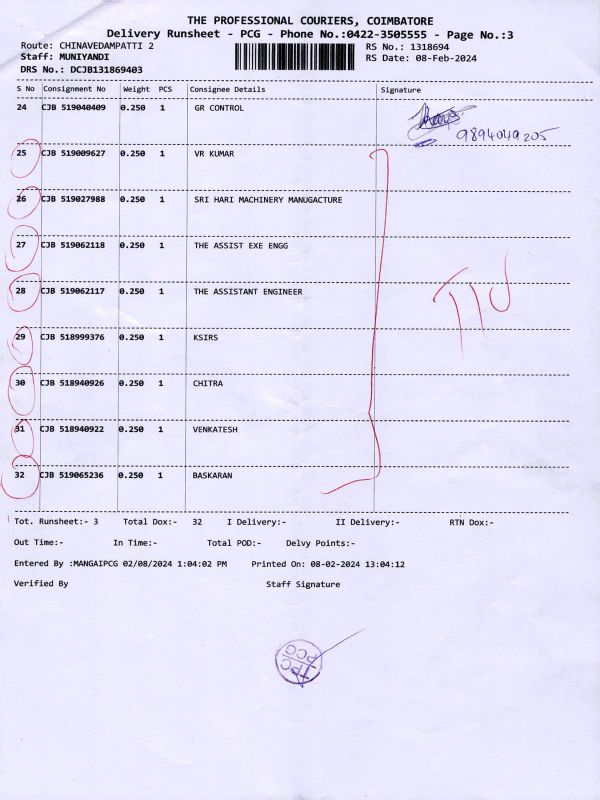 THE PROFESSIONAL COURIERS, COIMBATORE
Delivery Runsheet - PCG - Phone No.:0422-3505555 - Page No.:3
Route: CHINAVEDAMPATTI 2 RS No.: 1318694
Staff: MUNIYANDI RS Date: 08-Feb-2024
DRS No.: DCJB131869403
S No Consignment No Weight PCS Consignee Details Signature
24 CJB 519040409 0.250 1 GR CONTROL
9894049205
25 CJB 519009627 0.250 1 VR KUMAR
26 CJB 519027988 0.250 1 SRI HARI MACHINERY MANUGACTURE
27 CJB 519062118 0.250 1 THE ASSIST EXE ENGG
28 CJB 519062117 0.250 1 THE ASSISTANT ENGINEER
29 CJB 518999376 0.250 1 KSIRS
30 CJB 518940926 0.250 1 CHITRA
31 CJB 518940922 0.250 1 VENKATESH
32 CJB 519065236 0.250 1 BASKARAN
Tot. Runsheet:- 3 Total Dox:- 32 I Delivery:- II Delivery:- RTN Dox:-
Out Time:- In Time:- Total POD:- Delvy Points:-
Entered By :MANGAIPCG 02/08/2024 1:04:02 PM Printed On: 08-02-2024 13:04:12
Verified By Staff Signature
TPC
PCG